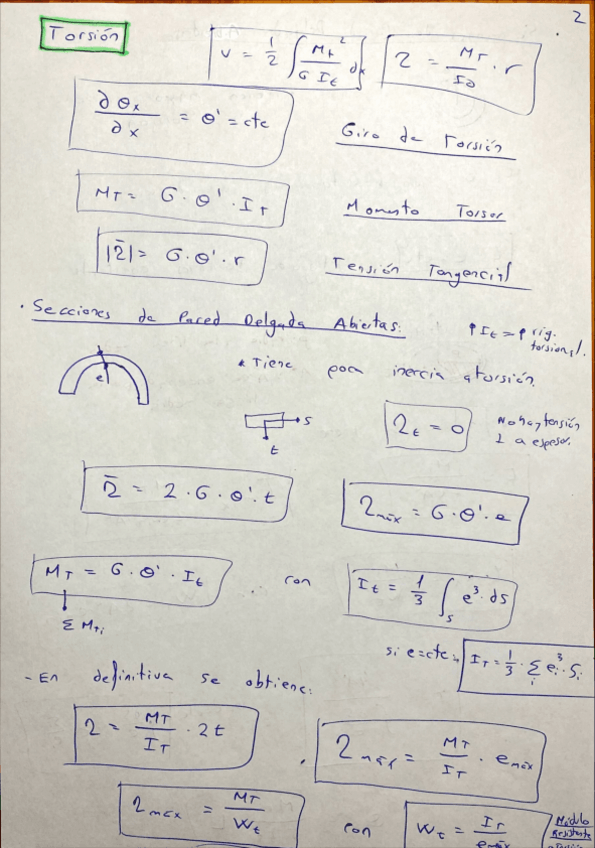 2
Torsión
U = 1/2 ∫ Mt²/(G It) dx
τ = MT/I0 · r
∂θx/∂x = θ' = cte
Giro de Torsión
MT = G · θ' · IT
Momento Torsor
|τ̄| = G · θ' · r
Tensión Tangencial
· Secciones de Pared Delgada Abiertas:
↑ It = ↑ rig. torsional.
e
* Tiene poca inercia a torsión.
s
t
τt = 0
No hay tensión
⊥ a espesor.
τ̄ = 2 · G · θ' · t
τmáx = G · θ' · e
MT = G · θ' · It
con
It = 1/3 ∫s e³ · ds
Σ MTi
si e=cte:
IT = 1/3 · Σi ei³ · Si
- En definitiva se obtiene:
τ = MT/IT · 2t
τmáx = MT/IT · emáx
τmáx = MT/Wt
con
Wt = IT/emáx
Módulo
Resistente
a Torsión